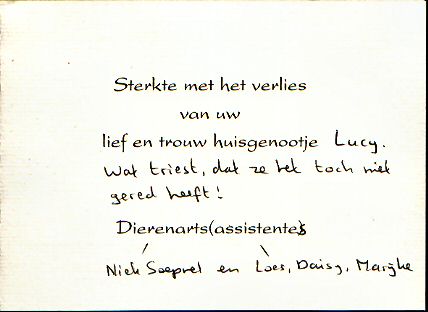 Sterkte met het verlies
van uw
lief en trouw huisgenootje Lucy.
Wat triest, dat ze het toch niet
gered heeft!
Dierenarts(assistentes
Niek Soepnel en Loes, Daisy, Marijke